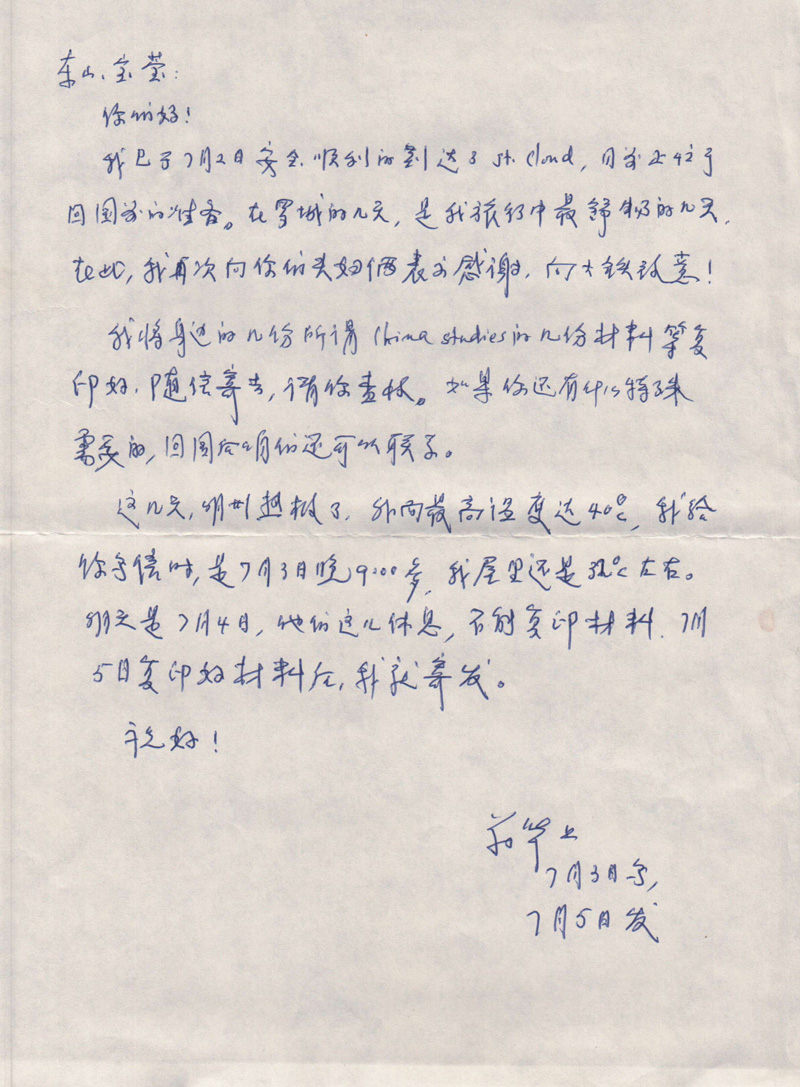 东山、宝莹:
你们好!
我已于7月2日安全、顺利的到达了St. Cloud, 目前正忙于
回国前的准备。在罗城的几天, 是我旅行中最舒畅的几天,
在此, 我再次向你们夫妇俩表示感谢, 向大铁致意!
我将身边的几份所谓China studies的几份材料等复
印好, 随信寄去, 请你查收。如果你还有什么特殊
需要的, 回国后9月份还可以联系。
这几天, 明州热极了, 外面最高温度达40℃, 我给
你写信时, 是7月3日晚9:00多, 我屋里还是32℃左右。
明天是7月4日, 他们这儿休息, 不能复印材料, 7月
5日复印好材料后, 我就寄发。
祝好!
上
7月3日写,
7月5日发